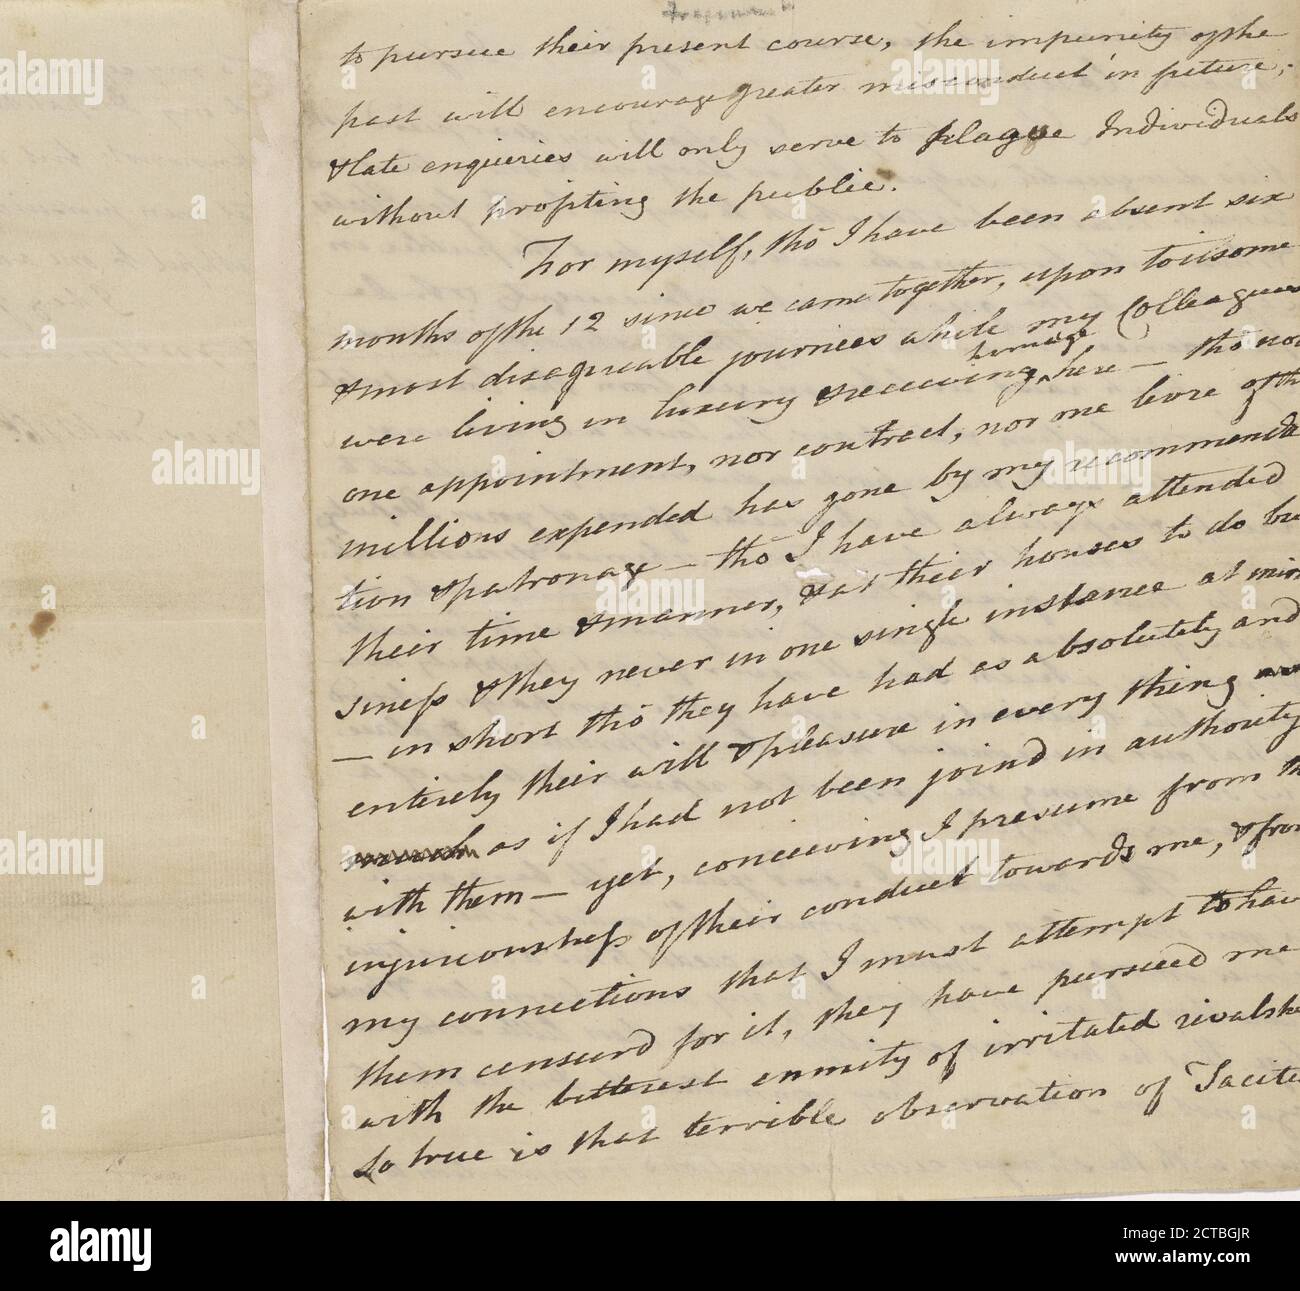 Fragment
to pursue their present course, the impunity of the
past will encourage greater misconduct in future;
& late enquiries will only serve to plague Individuals
without profiting the public.
For myself, tho I have been absent six
months of the 12 since we came together, upon toilsome
& most disagreeable journies while my Colleagues
homage
were living in luxury & receiving ^ here — tho not
one appointment, nor contract, nor one livre of th
millions expended has gone by my recommenda
tion & patronage — tho I have always attended
their time & manner, & at their houses to do bu
siness & they never in one single instance at mine
— in short tho they have had as absolutely and
entirely their will & pleasure in every thing
as if I had not been joind in authority
with them — yet, conceiving I presume from th
injuriousness of their conduct towards me, & from
my connections that I must attempt to have
them censurd for it, they have pursued me
with the bitterest enmity of irritated rivalshi
So true is that terrible observation of Tacitu
alamy
Image ID: 2CTBGJR
www.alamy.com